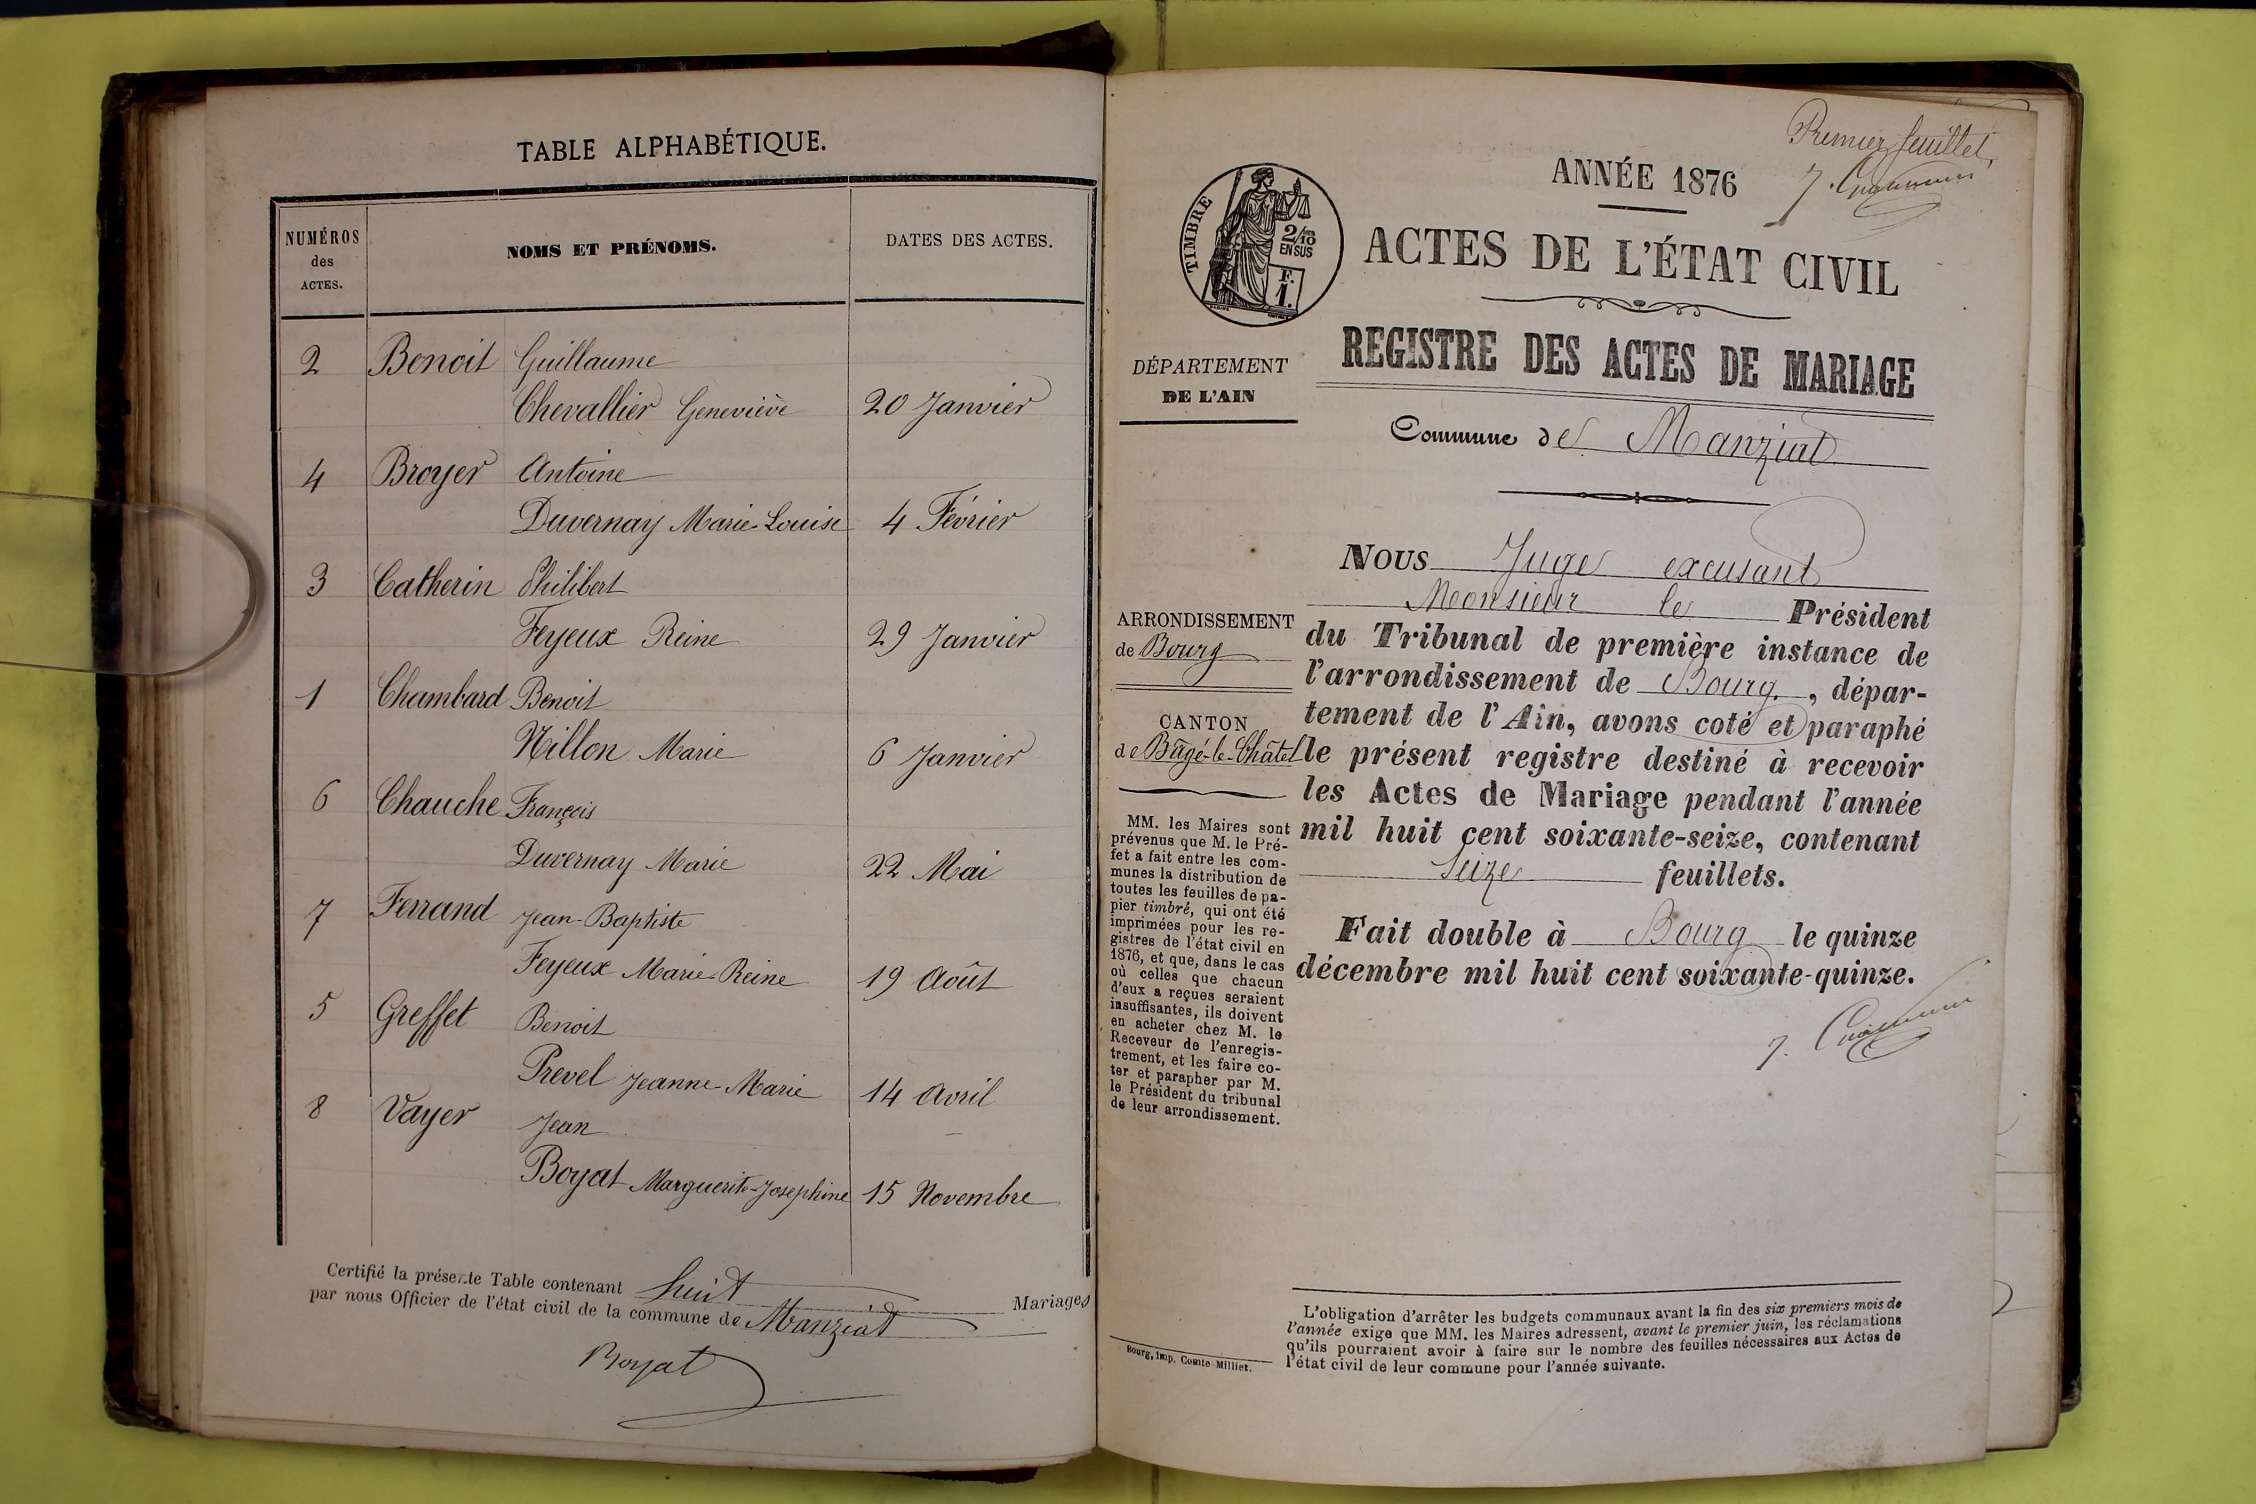 TABLE ALPHABÉTIQUE.
NUMÉROS
des
ACTES.
NOMS ET PRÉNOMS.
DATES DES ACTES.
2 Benoit Guillaume
Chevallier Geneviève 20 Janvier
4 Broyer Antoine
Duvernay Marie-Louise 4 Février
3 Catherin Philibert
Feyeux Reine 29 Janvier
1 Chambard Benoit
Nillon Marie 6 Janvier
6 Chauche François
Duvernay Marie 22 Mai
7 Ferrand Jean-Baptiste
Feyeux Marie-Reine 19 Août
5 Greffet Benoit
Prevel Jeanne-Marie 14 Avril
8 Vayer Jean
Boyat Marguerite-Josephine 15 Novembre
Certifié la présente Table contenant huit Mariages
par nous Officier de l'état civil de la commune de Manziat
Boyat
Premier feuillet,
ANNÉE 1876
TIMBRE
2/10
EN SUS
F.
1.
ACTES DE L'ÉTAT CIVIL
REGISTRE DES ACTES DE MARIAGE
DÉPARTEMENT
DE L'AIN
Commune de Manziat
ARRONDISSEMENT
de Bourg
CANTON
de Bâgé-le-Châtel
MM. les Maires sont
prévenus que M. le Pré-
fet a fait entre les com-
munes la distribution de
toutes les feuilles de pa-
pier timbré, qui ont été
imprimées pour les re-
gistres de l'état civil en
1876, et que, dans le cas
où celles que chacun
d'eux a reçues seraient
insuffisantes, ils doivent
en acheter chez M. le
Receveur de l'enregis-
trement, et les faire co-
ter et parapher par M.
le Président du tribunal
de leur arrondissement.
NOUS Juge excusant
Monsieur le Président
du Tribunal de première instance de
l'arrondissement de Bourg. , dépar-
tement de l'Ain, avons coté et paraphé
le présent registre destiné à recevoir
les Actes de Mariage pendant l'année
mil huit cent soixante-seize, contenant
seize feuillets.
Fait double à Bourg le quinze
décembre mil huit cent soixante-quinze.
L'obligation d'arrêter les budgets communaux avant la fin des six premiers mois de
l'année exige que MM. les Maires adressent, avant le premier juin, les réclamations
qu'ils pourraient avoir à faire sur le nombre des feuilles nécessaires aux Actes de
l'état civil de leur commune pour l'année suivante.
Bourg, imp. Comte-Milliet.